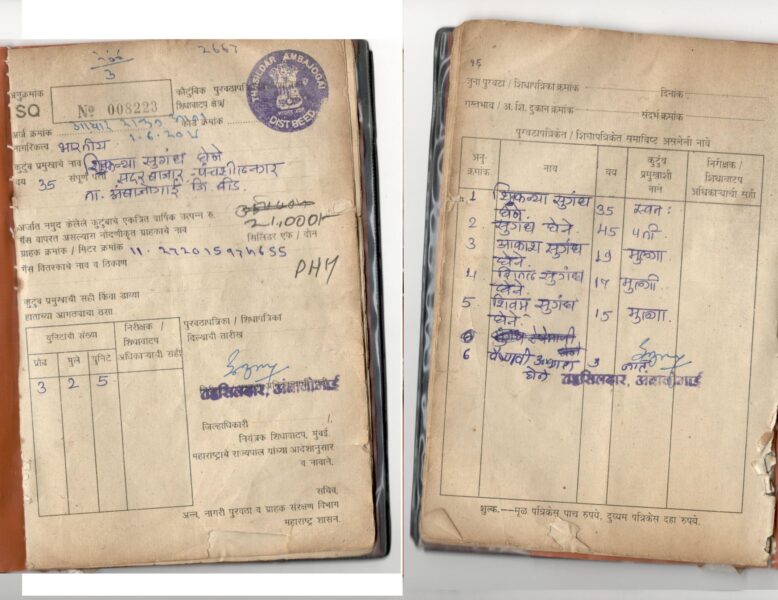 2667
3
अनुक्रमांक
SQ
Nº 008223
कौटुंबिक पुरवठापत्रिका
शिधावाटप क्षेत्र/
THASILDAR AMBAJOGAI
DIST BEED
अर्ज क्रमांक
नागरिकत्व भारतीय
कुटुंब प्रमुखाचे नाव शिकन्या सुगंध घोने
वय 35 संपूर्ण पत्ता सदर बाजार पंचशीलनगर
ता. अंबाजोगाई जि बीड.
अर्जात नमुद केलेले कुटुंबाचे एकत्रित वार्षिक उत्पन्न रु.
21,000/-
गॅस वापरत असल्यास नोंदणीकृत ग्राहकाचे नाव
सिलिंडर एक / दोन
ग्राहक क्रमांक / मिटर क्रमांक
गॅस वितरकाचे नाव व ठिकाण
PHH
कुटुंब प्रमुखाची सही किंवा डाव्या
हाताच्या आंगठ्याचा ठसा
युनिटांची संख्या
निरीक्षक /
शिधावाटप
अधिकाऱ्याची सही
पुरवठापत्रिका / शिधापत्रिका
दिल्याची तारीख
प्रौढ मुले युनिटे
3 2 5
तहसिलदार, अंबाजोगाई
जिल्हाधिकारी
नियंत्रक शिधावाटप, मुंबई.
महाराष्ट्राचे राज्यपाल यांच्या आदेशानुसार
व नावाने.
सचिव,
अन्न, नागरी पुरवठा व ग्राहक संरक्षण विभाग
महाराष्ट्र शासन.
१५
जुना पुरवठा / शिधापत्रिका क्रमांक दिनांक
रास्तभाव / अ. शि. दुकान क्रमांक संदर्भ क्रमांक
पुरवठापत्रिकेत / शिधापत्रिकेत समाविष्ट असलेली नावे
अनु-
क्रमांक
नाव
वय
कुटुंब
प्रमुखाशी
नाते
निरीक्षक /
शिधावाटप
अधिकाऱ्याची सही
1 शिकन्या सुगंध घोने 35 स्वतः
2 सुगंध घोने 45 पती
3 आकाश सुगंध घोने 19 मुलगा
4 सुगंध घोने 17 मुलगी
5 सुगंध घोने 15 मुलगा.
6 वैष्णवी घोने 3 नात
तहसिलदार, अंबाजोगाई
शुल्क.---मूळ पत्रिकेस पाच रुपये, दुय्यम पत्रिकेस दहा रुपये.